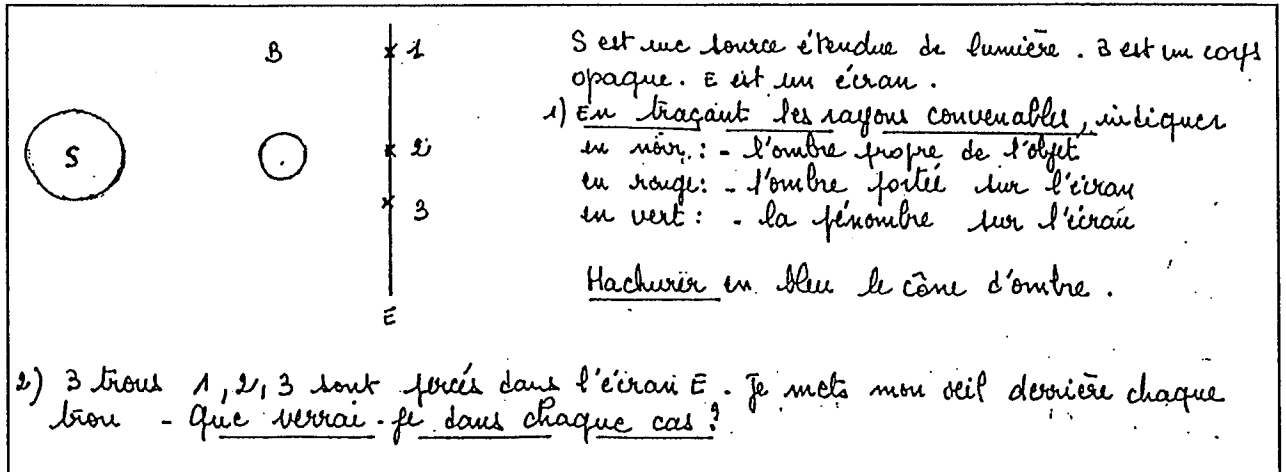 B
1
S
2
3
E
S est une source étendue de lumière. B est un corps
opaque. E est un écran.
1) En traçant les rayons convenables, indiquer
en noir : - l'ombre propre de l'objet
en rouge : - l'ombre portée sur l'écran
en vert : - la pénombre sur l'écran
Hachurer en bleu le cône d'ombre.
2) 3 trous 1, 2, 3 sont percés dans l'écran E. Je mets mon œil derrière chaque
trou - Que verrai-je dans chaque cas ?